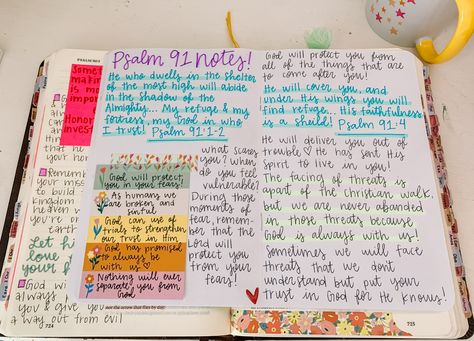 PSALM 91
Psalm 91 notes!
He who dwells in the shelter
of the most high will abide
in the shadow of the
Almighty... My refuge & my
fortress, my God in who
I trust! Psalm 91:1-2
God will protect
you in your fears!
As humans we
are broken and
sinful
God can use of
trials to strengthen
our trust in Him
God has promised
to always be
with us
Nothing will ever
separate you from
God
what scares
you? When
do you feel
vulnerable?
During those
moments of
fear, remem-
ber that the
Lord will
protect you
from your
fears!
God will protect you from
all of the things that are
to come after you!
He will cover you, and
under His wings you will
find refuge. His faithfulness
is a sheild! Psalm 91:4
He will deliver you out of
trouble & He has sent His
spirit to live in you!
The facing of threats is
apart of the Christian walk,
but we are never abandoned
in those threats because
God is always with us!
Sometimes we will face
threats that we dont
understand but put your
trust in God for He knows!
Some
making
is mo
impor
honor
inves
by the w
Remembe
your miss
to build
kingdom
heaven
you're
on ea
Let he
love
your f
God will
always
& give you
a way out from evil
724
725